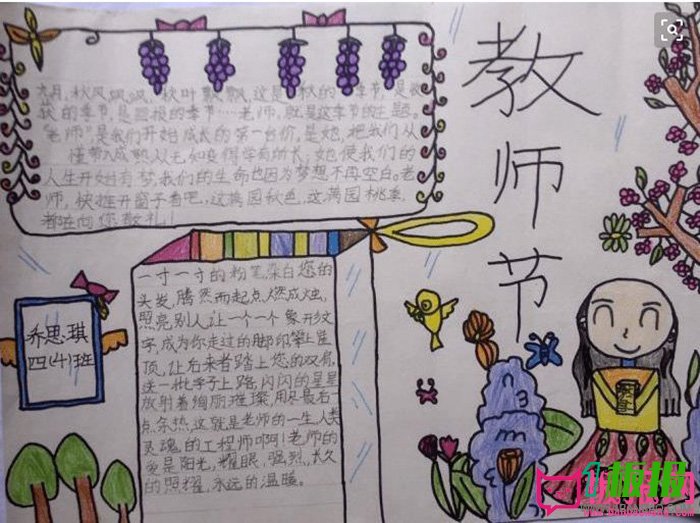 教师节
九月,秋风飒飒,秋叶飘飘,这是秋的季节,是收
获的季节,是回报的季节……老师,就是这季节的主题。
"老师"是我们开始成长的第一台价,是她,把我们从
懂带入成熟从无知变得学有所长;她使我们的
人生开始有梦,我们的生命也因为梦想不再空白。老
师,快推开窗子看吧,这满园秋色,这满园桃李,
都在向您敬礼!
一寸一寸的粉笔染白您的
头发,腾然而起点燃成烛,
照亮别人让一个一个象形文
字,成为你走过的脚印攀上崖
顶,让后来者踏上您的双肩,
送一批学子上路,闪闪的星星
放射着绚丽璀璨,用尽最后一
点余热,这就是老师的一生人类
灵魂的工程师啊啊!老师的
爱是阳光,耀眼,强烈,长久
的照耀,永远的温暖。
乔思琪
四(4)班
板报